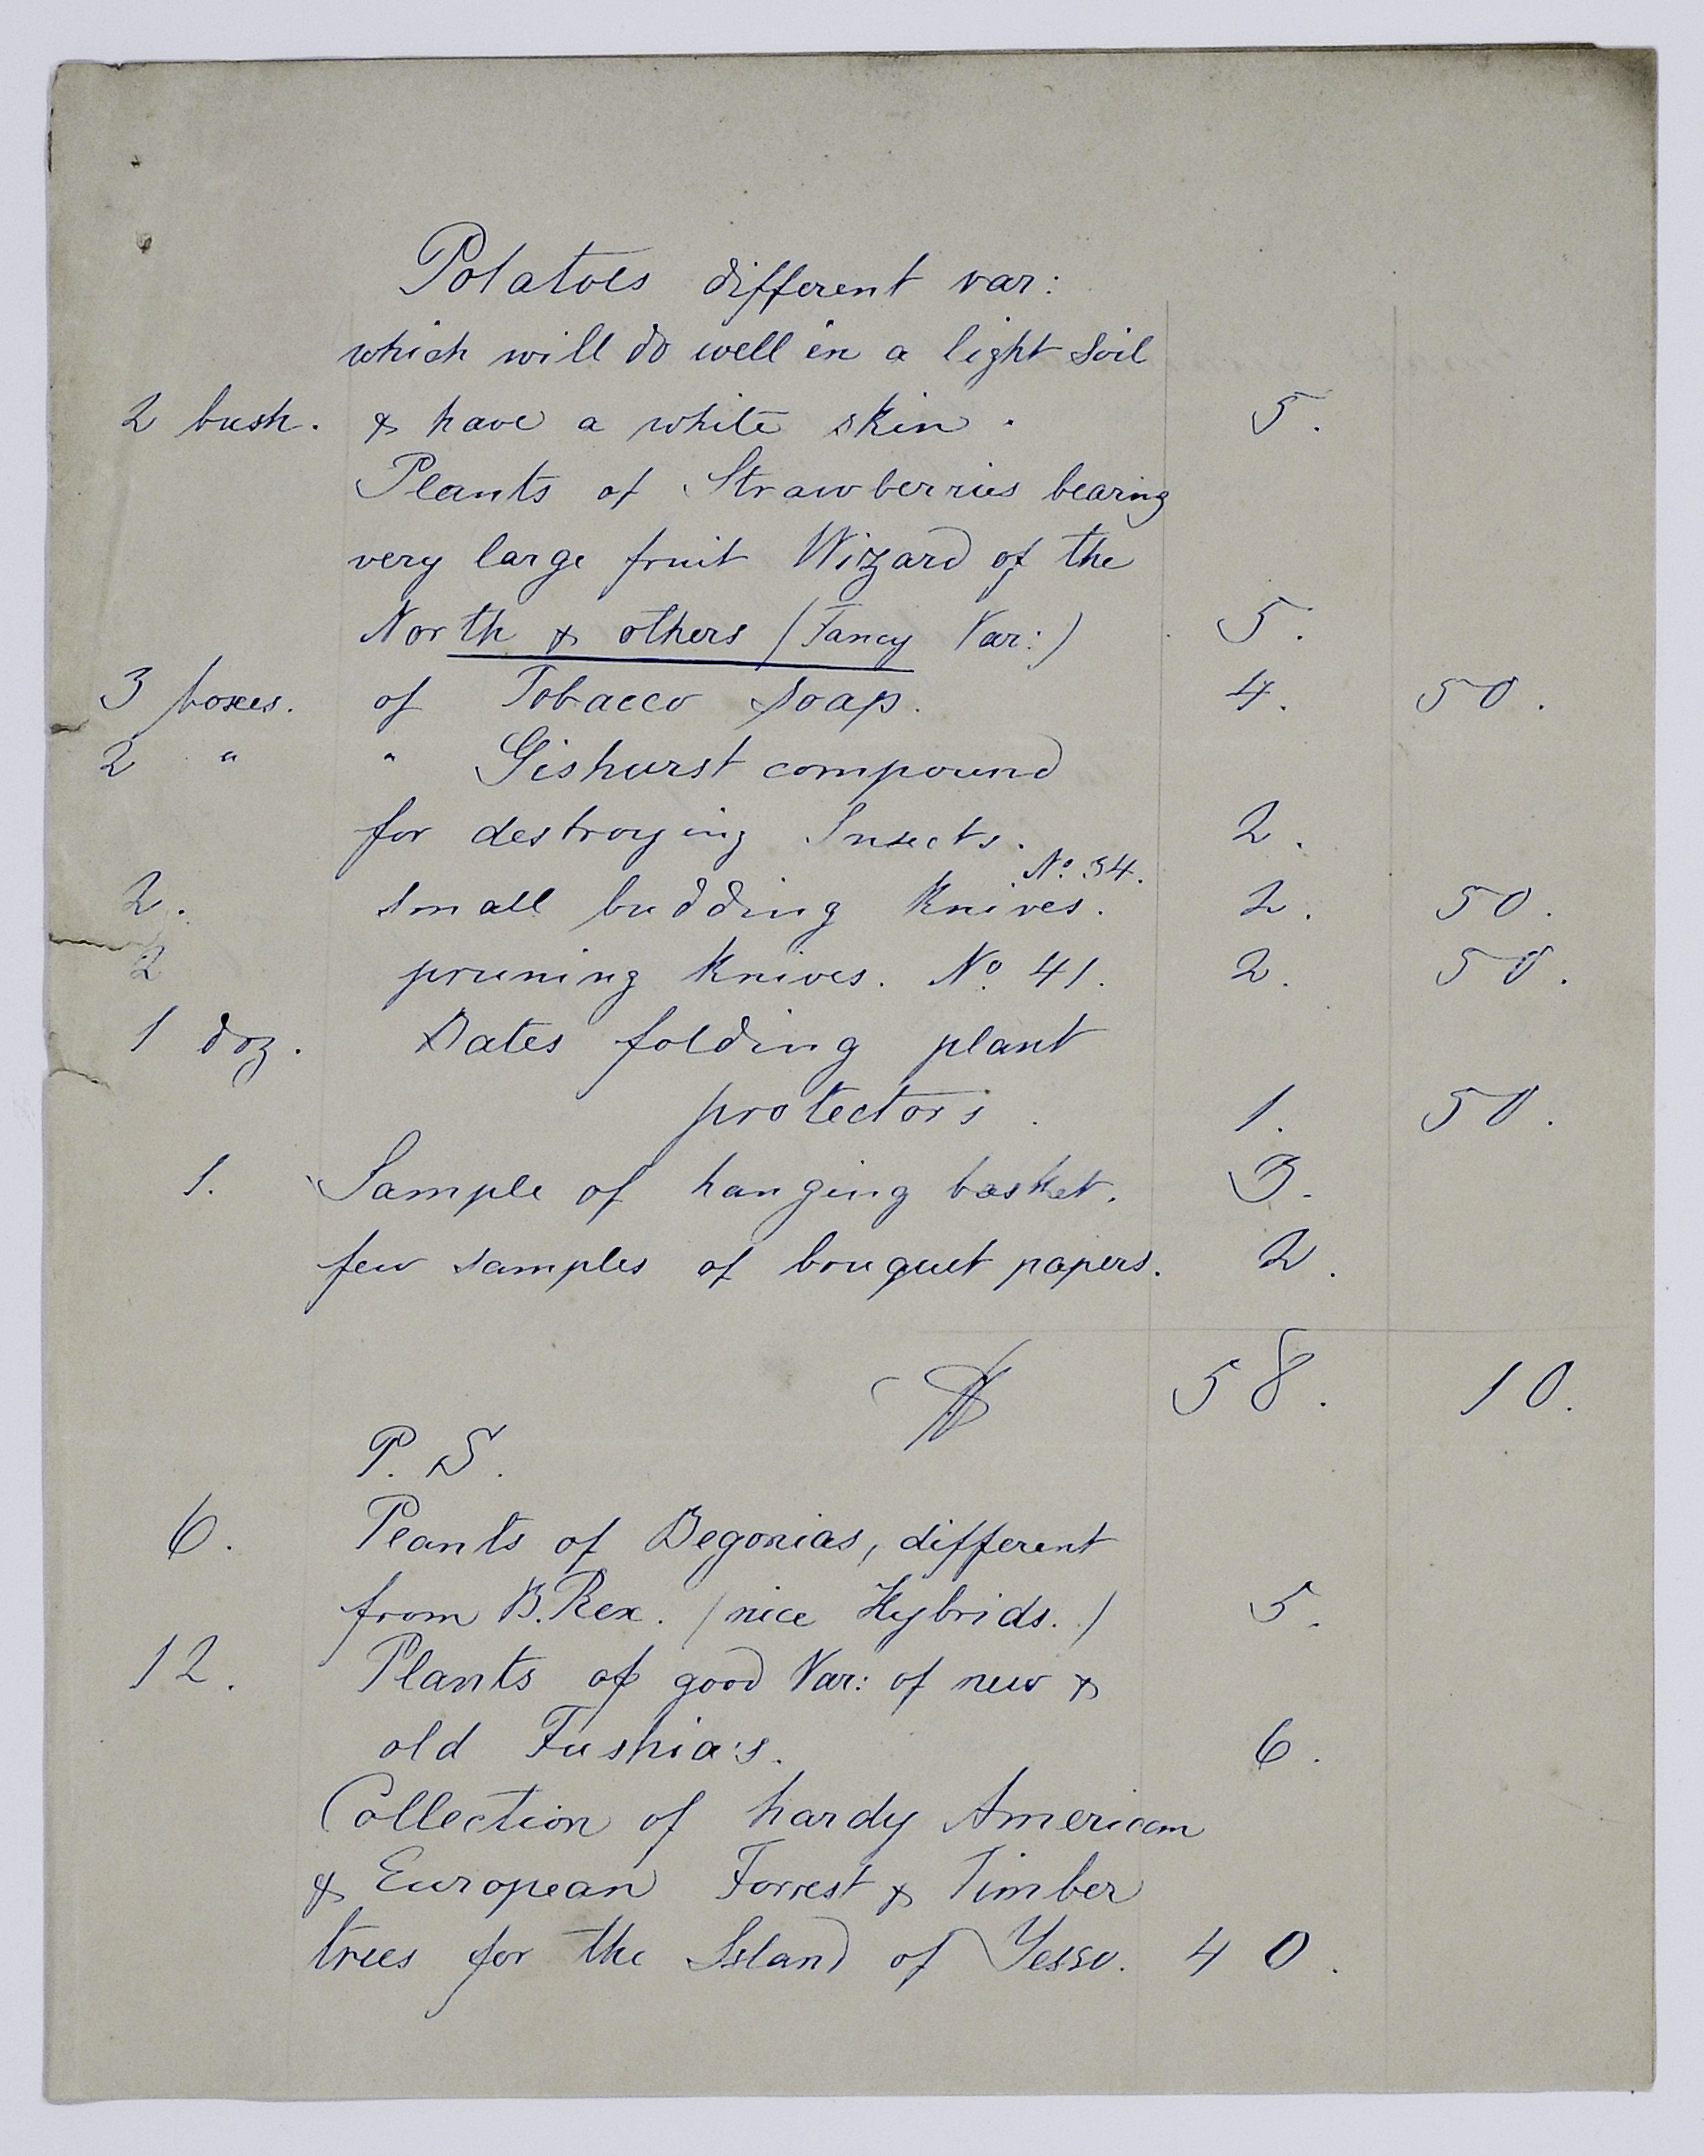 Potatoes different var:
which will do well in a light soil
2 bush. & have a white skin. 5.
Plants of Strawberries bearing
very large fruit Wizard of the
North & others (Fancy Var:) 5.
3 boxes. of Tobacco soap. 4. 50.
2 " " Gishurst compound
for destroying Insects. 2.
No. 34.
2. small budding knives. 2. 50.
2 pruning knives. No. 41. 2. 50.
1 doz. Bates folding plant
protectors. 1. 50.
1. Sample of hanging basket. 3.
few samples of bouquet papers. 2.
$ 58. 10.
P. S.
6. Plants of Begonias, different
from B. Rex. (nice Hybrids.) 5.
12. Plants of good Var: of new &
old Fushia's. 6.
Collection of hardy American
& European Forrest & Timber
trees for the Island of Yesso. 40.